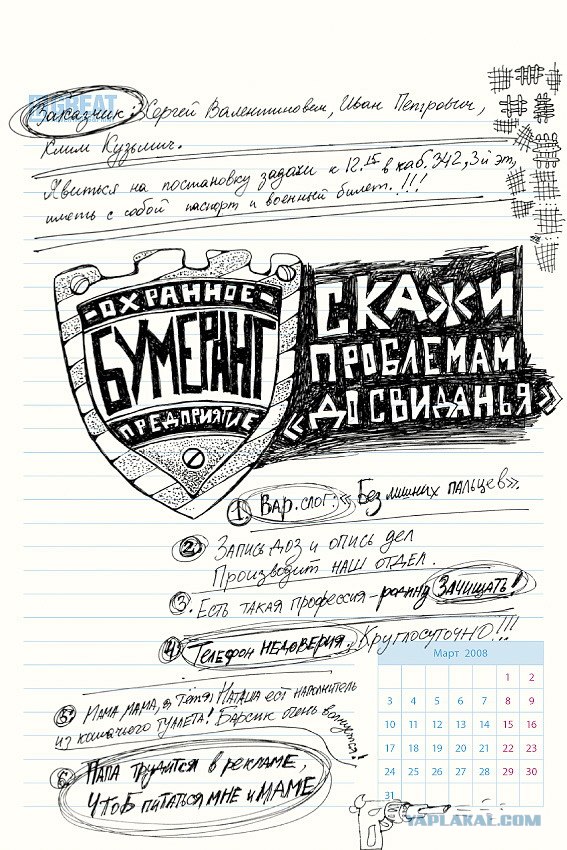 Заказчик: Сергей Валентинович, Иван Петрович,
Клим Кузьмич.
Явиться на постановку задачи к 12.15 в каб. 342, 3й эт,
иметь с собой паспорт и военный билет.!!!
-ОХРАННОЕ-
БУМЕРАНГ
ПРЕДПРИЯТИЕ
СКАЖИ
ПРОБЛЕМАМ
«ДО СВИДАНЬЯ»
1. Вар. слог: «Без лишних пальцев».
2. Запись доз и опись дел
Производит наш отдел.
3. Есть такая профессия - родину ЗАЧИЩАТЬ!
4. Телефон НЕДОВЕРИЯ. Круглосуточно!!!
5. Мама мама, а тётя Наташа ест наполнитель
из кошачьего туалета! Барсик очень волнуется!
6. ПАПА трудится в рекламе,
ЧТОБ питаться МНЕ и МАМЕ
Март 2008
1 2
3 4 5 6 7 8 9
10 11 12 13 14 15 16
17 18 19 20 21 22 23
24 25 26 27 28 29 30
31
YAPLAKAL.COM